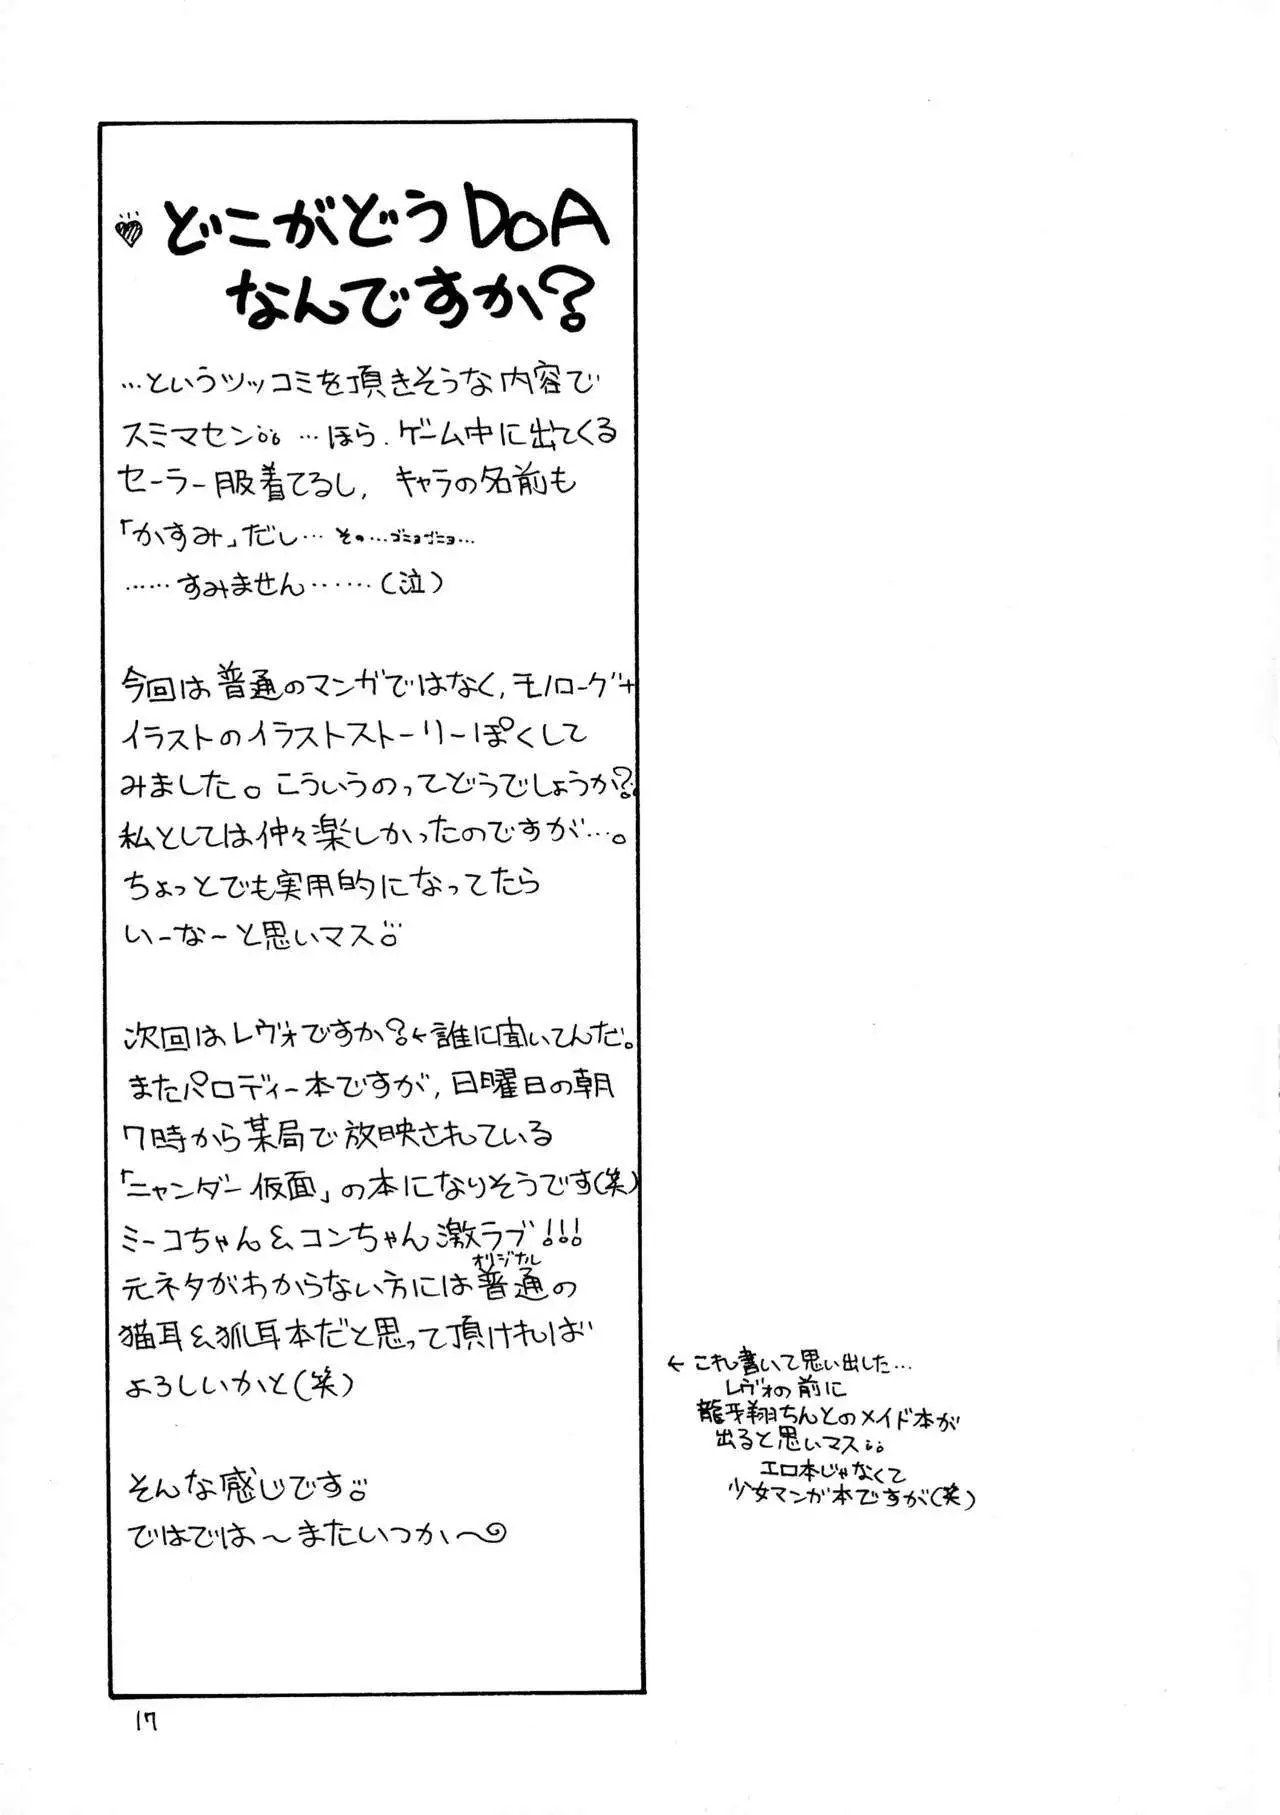 どこがどうDOA
なんですか?
…というツッコミを頂きそうな内容で
スミマセン…ほら、ゲーム中に出てくる
セーラー服着てるし、キャラの名前も
「かすみ」だし…その…ゴニョゴニョ…
……すみません……(泣)
今回は普通のマンガではなく、モノローグ+
イラストのイラストストーリーぽくして
みました。こういうのってどうでしょうか?
私としては仲々楽しかったのですが…。
ちょっとでも実用的になってたら
いーなーと思いマス
次回はレヴォですか?←誰に聞いてんだ。
またパロディー本ですが、日曜日の朝
7時から某局で放映されている
「ニャンダー仮面」の本になりそうです(笑)
ミーコちゃん&コンちゃん激ラブ!!!
オリジナル
元ネタがわからない方には普通の
猫耳&狐耳本だと思って頂ければ
よろしいかと(笑)
そんな感じです
ではでは〜またいつか〜
←これ書いて思い出した…
レヴォの前に
龍牙翔ちんとのメイド本が
出ると思いマス
エロ本じゃなくて
少女マンガ本ですが(笑)
17